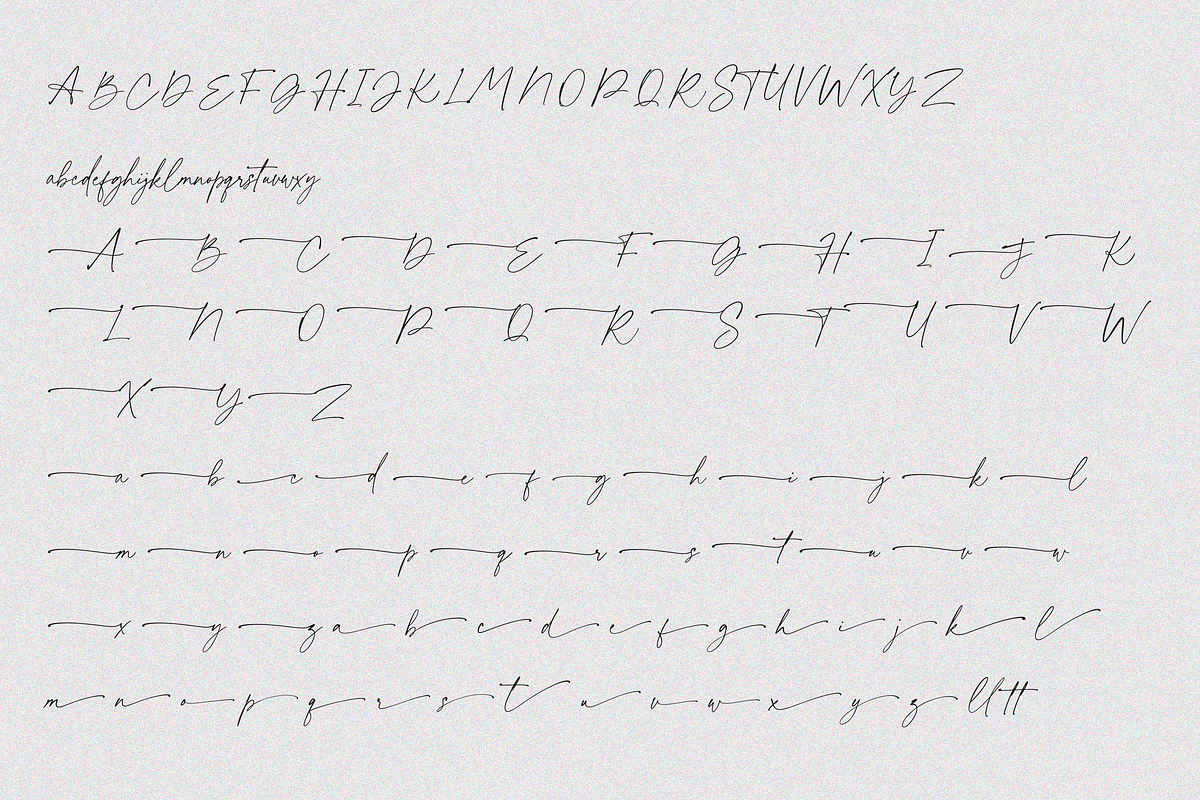 A B C D E F G H I J K L M N O P Q R S T U V W X Y Z
abcdefghijklmnopqrstuvwxy
A B C D E F G H I J K
L N O P Q R S T U V W
X Y Z
a b c d e f g h i j k l
m n o p q r s t u v w
x y z a b c d e f g h i j k l
m n o p q r s t u v w x y z ll tt